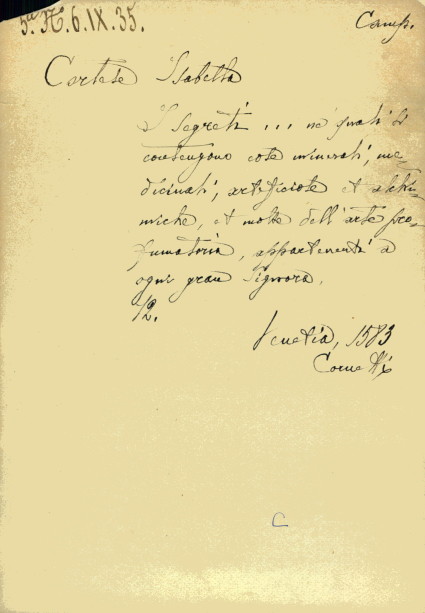 5.ª N.6.IX.35.
Camp.
Cortese Isabella
I segreti ... ne' quali si
contengono cose minerali, me-
dicinali, artificiose et alchi-
miche, et molte dell'arte pro-
fumatoria, appartenenti a
ogni gran Signora.
12.
Venetia, 1583
Cornetti
C